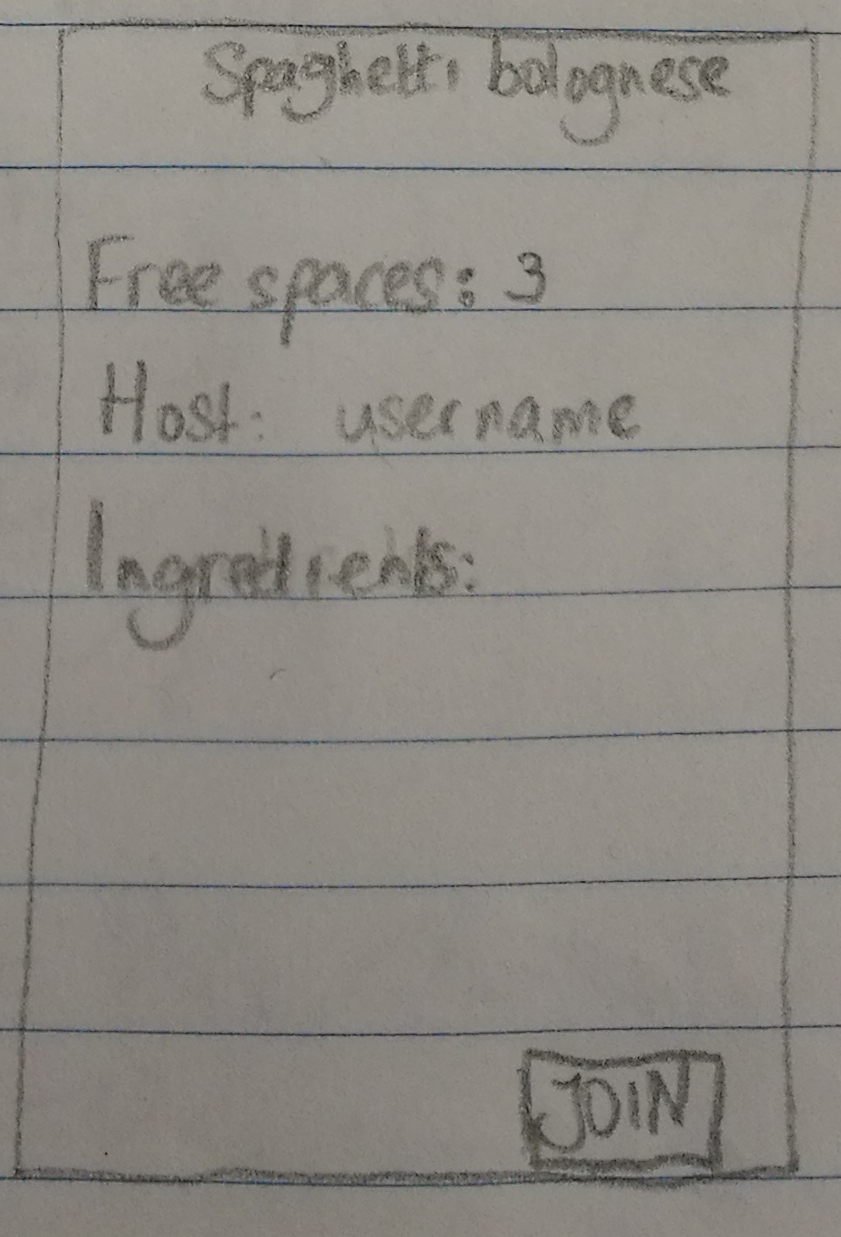 Spaghetti bolognese
Free spaces: 3
Host: username
Ingredients:
JOIN